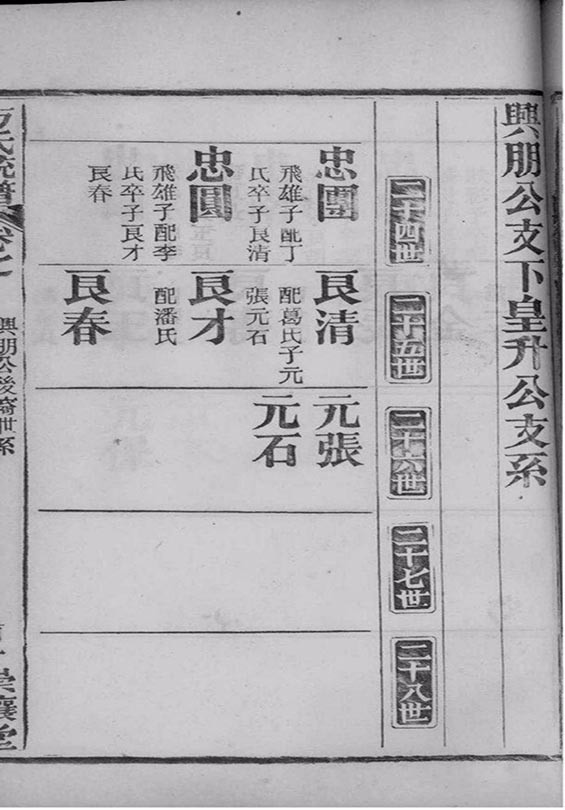 興朋公支下皇升公支系
二十四世
二十五世
二十六世
二十七世
二十八世
忠團
飛雄子配丁
氏卒子良清
良清
配葛氏子元
張元石
元張
元石
忠圓
飛雄子配李
氏卒子良才
良春
良才
配潘氏
良春
氏統譜
興朋公後裔世系